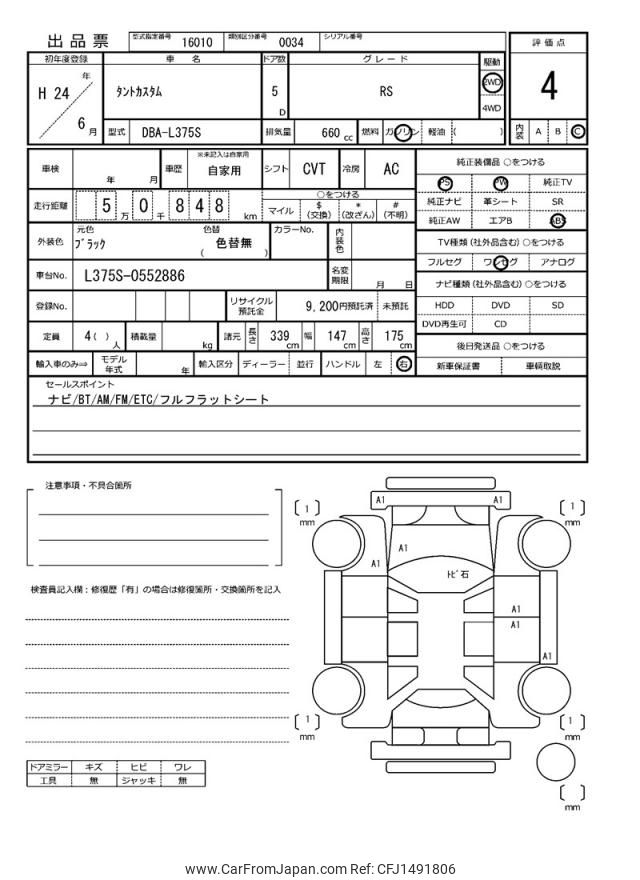 出品票 型式指定番号 16010 類別区分番号 0034 シリアル番号
評価点
4
初年度登録 車名 ドア数 グレード 駆動
H 24 年 6 月 タントカスタム 5 D RS 2WD 4WD
型式 DBA-L375S 排気量 660 cc 燃料 ガソリン 軽油 ( )
内装 A B C
車検 年 月 車歴 ※未記入は自家用 自家用 シフト CVT 冷房 AC
走行距離 5 万 0 千 8 4 8 km
○をつける
マイル $(交換) *(改ざん) #(不明)
外装色 元色 ブラック 色替 色替無 ( ) カラーNo. 内装色
車台No. L375S-0552886 名変期限 月 日
登録No. リサイクル預託金 9,200円預託済 未預託
定員 4( ) 人 積載量 kg 諸元 長さ 339 cm 幅 147 cm 高さ 175 cm
輸入車のみ⇒ モデル年式 年 輸入区分 ディーラー 並行 ハンドル 左 右
純正装備品 ○をつける
PS PW 純正TV
純正ナビ 革シート SR
純正AW エアB ABS
TV種類(社外品含む)○をつける
フルセグ ワンセグ アナログ
ナビ種類(社外品含む)○をつける
HDD DVD SD
DVD再生可 CD
後日発送品 ○をつける
新車保証書 車輌取説
セールスポイント
ナビ/BT/AM/FM/ETC/フルフラットシート
注意事項・不具合箇所
検査員記入欄：修復歴「有」の場合は修復箇所・交換箇所を記入
ドアミラー キズ ヒビ ワレ
工具 無 ジャッキ 無
[ 1 ] mm
A1 A1
[ 1 ] mm
A1
A1
トビ石
A1
A1
A1
[ 1 ] mm
[ 1 ] mm
[ ] mm
www.CarFromJapan.com Ref: CFJ1491806